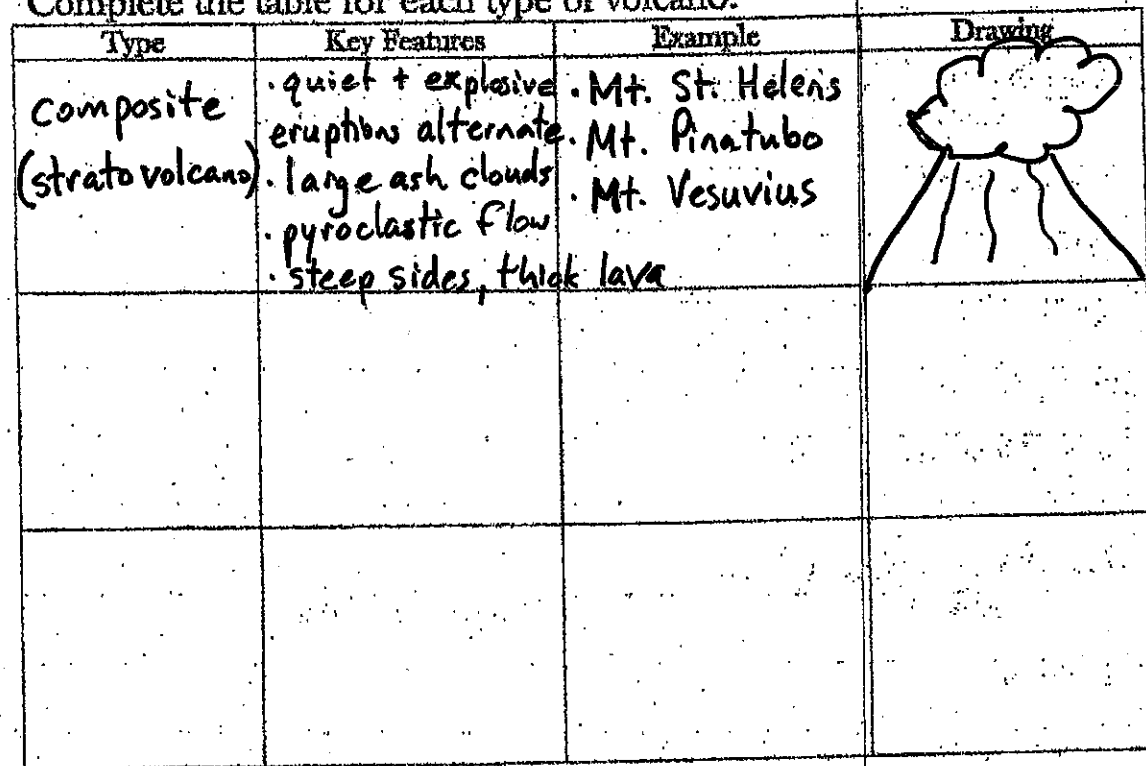 Complete the table for each type of volcano.
Type Key Features Example Drawing
composite
(stratovolcano)
· quiet + explosive
eruptions alternate
· large ash clouds
· pyroclastic flow
· steep sides, thick lava
· Mt. St. Helens
· Mt. Pinatubo
· Mt. Vesuvius